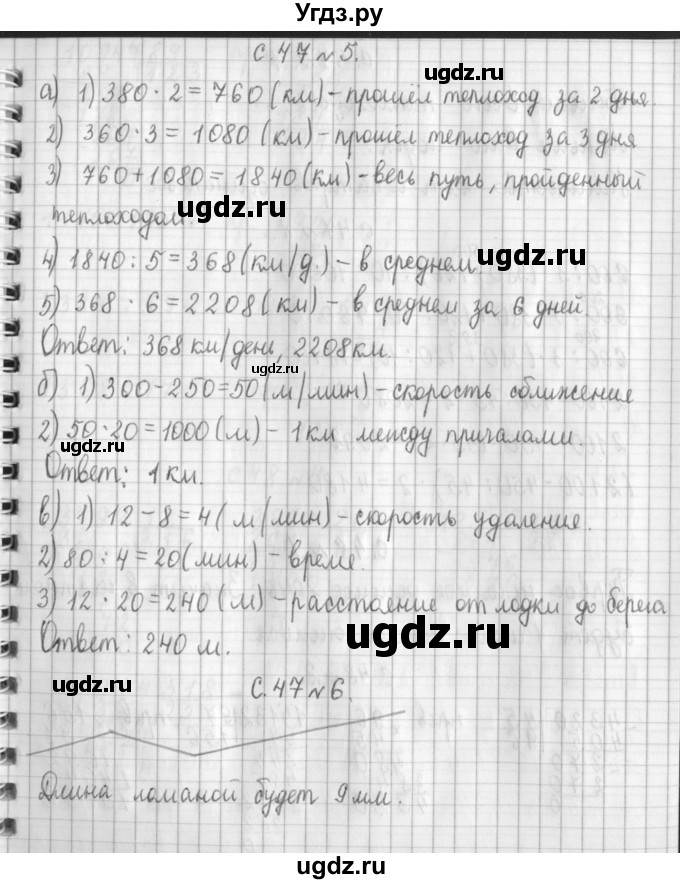 Угдз.ру
с.47 № 5.
а) 1) 380 · 2 = 760 (км) - прошёл теплоход за 2 дня.
2) 360 · 3 = 1080 (км) - прошёл теплоход за 3 дня
3) 760 + 1080 = 1840 (км) - весь путь, пройденный
теплоходом.
ugdz.ru
ugdz.ru
4) 1840 : 5 = 368 (км/д.) - в среднем.
ugdz.ru
5) 368 · 6 = 2208 (км) - в среднем за 6 дней.
Ответ: 368 км/день, 2208 км.
ugdz.ru
б) 1) 300 - 250 = 50 (м/мин) - скорость сближение
2) 50 · 20 = 1000 (м) - 1 км между причалами.
ugdz.ru
Ответ: 1 км.
в) 1) 12 - 8 = 4 (м/мин) - скорость удаление.
2) 80 : 4 = 20 (мин) - време.
ugdz.ru
3) 12 · 20 = 240 (м) - расстояние от лодки до берега
Ответ: 240 м.
ugdz.ru
ugdz.ru
с.47 № 6.
Длина ломаной будет 9 мм.
ugdz.ru